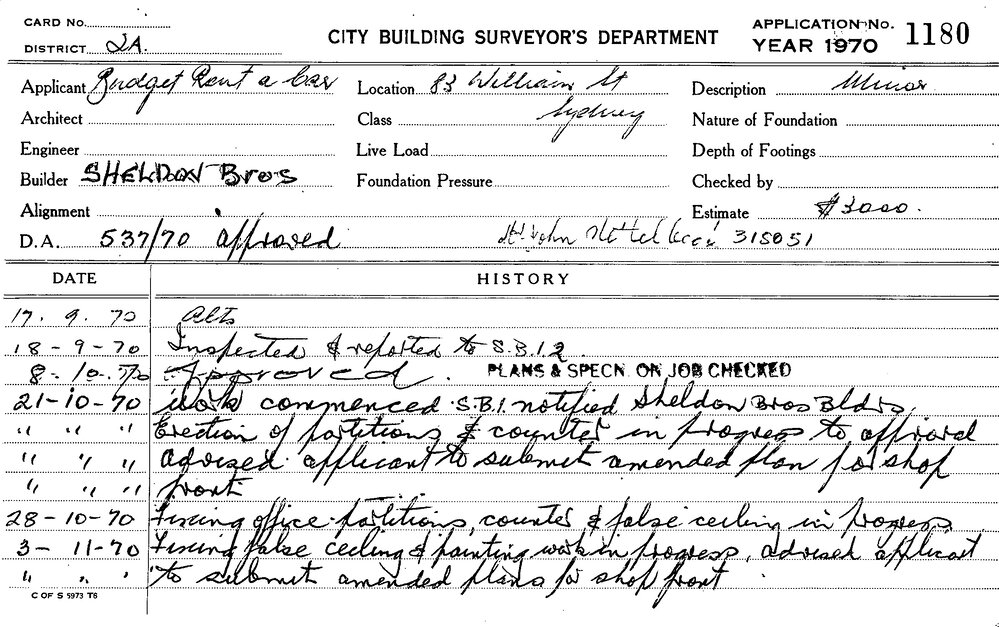 CARD No.
DISTRICT 2A.
CITY BUILDING SURVEYOR'S DEPARTMENT
APPLICATION No. 1180
YEAR 1970
Applicant Budget Rent a Car
Location 83 William St
Sydney
Description Minor
Architect
Class
Nature of Foundation
Engineer
Live Load
Depth of Footings
Builder SHELDON Bros
Foundation Pressure
Checked by
Alignment
Estimate $3000.
D.A. 537/70 approved
John 315051
DATE HISTORY
17. 9. 70 Alts
18-9-70 Inspected & reported to S.B.I.2.
8-10-70 Approved. PLANS & SPECN. ON JOB CHECKED
21-10-70 Work commenced S.B.I. notified Sheldon Bros Bldrs,
" " " Erection of partitions & counter in progress to approval
" " " advised applicant to submit amended plan for shop
" " " front
28-10-70 Fixing office partitions, counter & false ceiling in progress
3-11-70 Fixing false ceiling & painting work in progress, advised applicant
" " " to submit amended plans for shop front
C OF S 5973 T6